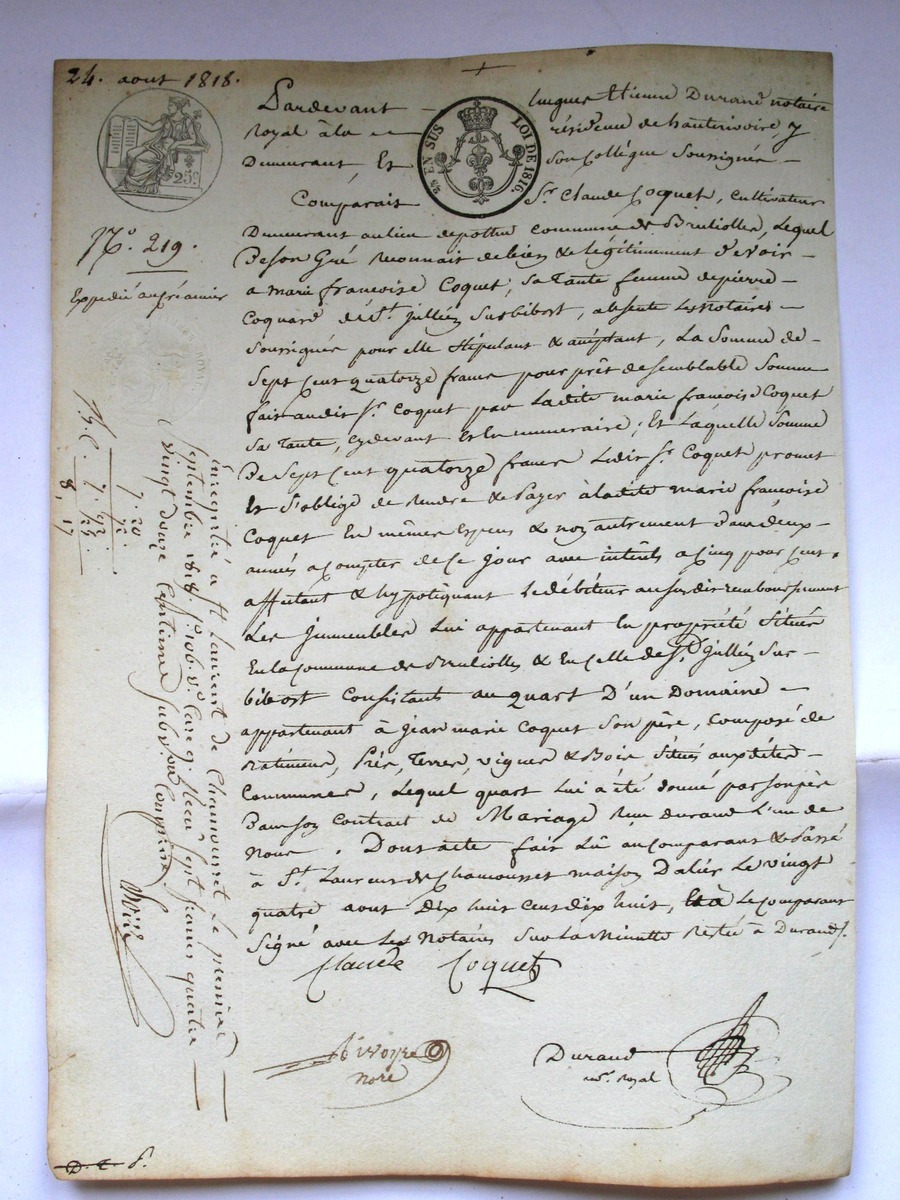 24. aout 1818.
Pardevant hugues Etienne Durand notaire
Royal à la résidence de hauterivoire y
Demeurant, Et Son Collègue Soussignés
25 EN SUS
LOI DE 1816.
25c.
Comparait Sr. Claude Coquet, Cultivateur
Demeurant au lieu de pottu commune de Bruliolles, Lequel
De Son Gré reconnait debien & légitimement devoir
a marie françoise Coquet, Sa Tante femme de pierre
Coquard de St. jullien Sur bibost, absente Les Notaires
Soussignés pour elle Stipulant & acceptant, La Somme de
Sept Cent quatorze francs pour prêt de semblable Somme
fait audit Sr. Coquet par Ladite marie françoise Coquet
Sa Tante, Cydevant Et En numeraire; Et Laquelle Somme
De Sept Cent quatorze francs Ledit Sr. Coquet promet
Et S'oblige de Rendre & Payer à ladite marie francoise
Coquet En mêmes Especes & non autrement Dans deux
années a compter de Ce jour avec intérêts a Cinq pour Cent
affectant & hypotiquant Le débiteur au susdit remboursement
Les Immeubles Lui appartenant En propriété Situés
En la Commune de Bruliolles & En Celle de St. jullien Sur
bibost Consistant au quart D'un Domaine
appartenant à jean marie Coquet Son père, Composé de
Batiments, Prés, Terres, vignes & Bois Situés auxdites
Communes, Lequel quart Lui a été donné par son père
Dans son Contrat de Mariage Reçu durand L'un de
Nous. Dont acte fait Lû au comparant & Passé
à St. Laurent de Chamousset maison Dalier Le vingt
quatre aout Dix huit Cent dix huit, Et a Le comparant
Signé avec Les Notaires Sur La Minutte Restée à Durand
Claude Coquet
Divoyre
nore
Durand
not. Royal
No. 219.
Expedié au créancier
7. 20
72
7. 92
25
8. 17
Enregistré a St Laurent de Chamousset le premier
Septembre 1818. fo. 106. Vo. Case 9 Recu Sept francs quatre
vingt douze Centimes Subvention Comprise
D. C. d.